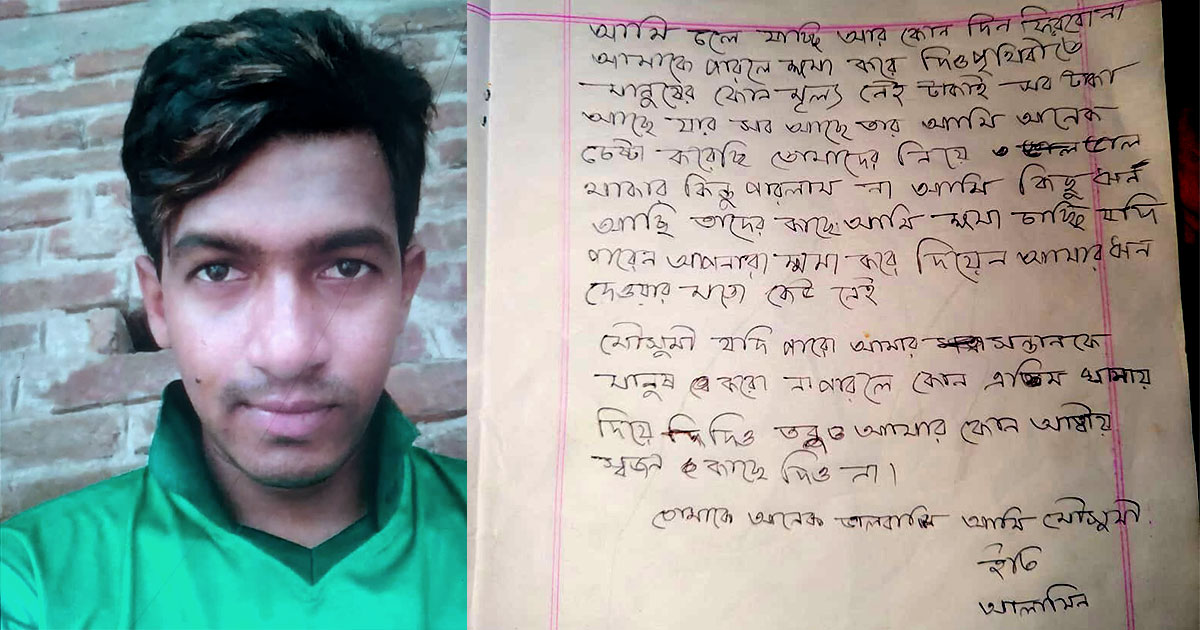 আমি চলে যাচ্ছি আর কোন দিন ফিরবো না
আমাকে পারলে ক্ষমা করে দিও পৃথিবীতে
মানুষের কোন মূল্য নেই টাকাই সব টাকা
আছে যার সব আছে তার আমি অনেক
চেষ্টা করেছি তোমাদের নিয়ে ভাল
থাকার কিন্তু পারলাম না আমি কিছু ঋন
আছি তাদের কাছে আমি ক্ষমা চাচ্ছি যদি
পারেন আপনারা ক্ষমা করে দিয়েন আমার ঋন
দেওয়ার মতো কেউ নেই
মৌসুমী যদি পারো আমার সন্তানকে
মানুষ করো না পারলে কোন এতিম খানায়
দিয়ে দিও তবুও আমার কোন আত্মীয়
স্বজন কাছে দিও না।
তোমাকে অনেক ভালবাসি আমি মৌসুমী
ইতি
আলামিন